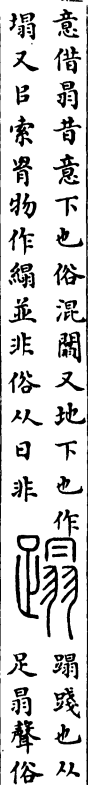 意偕𦐇昔意下也俗混闒又地下也作
塌又㠯索罥物作䌈並非俗从日非
蹋
蹋踐也从
足𦐇聲俗